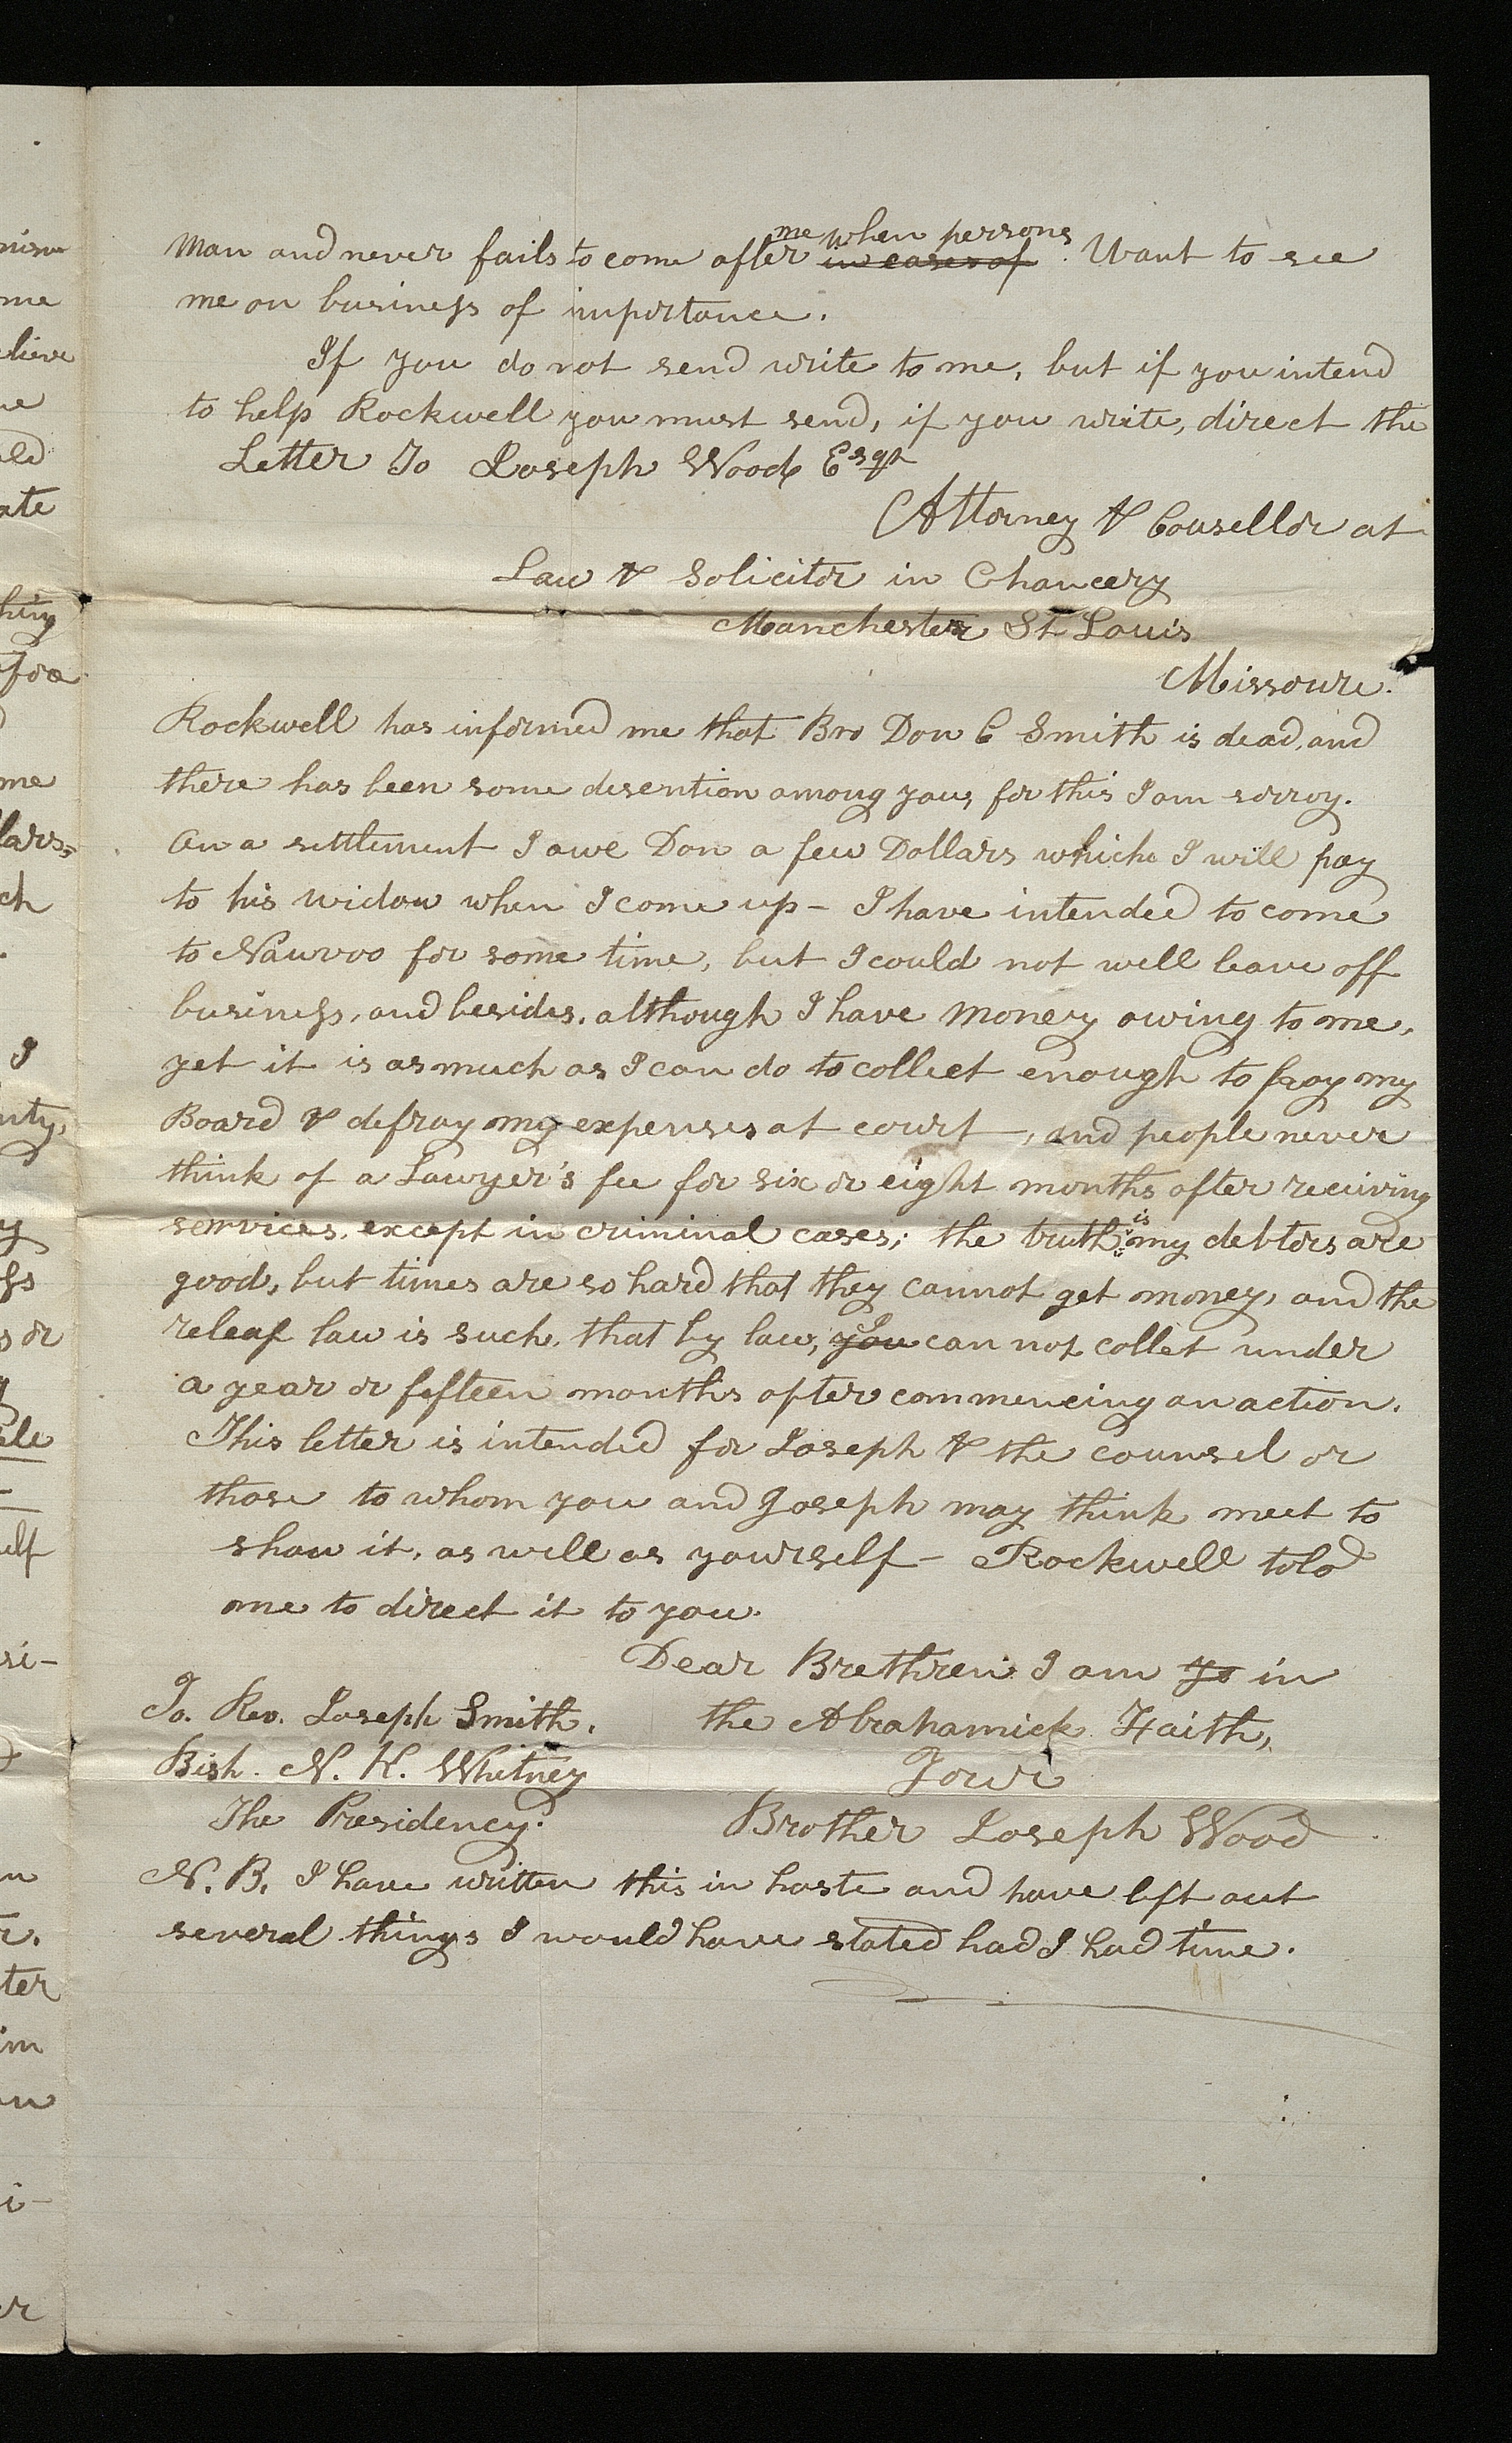 man and never fails to come after me when persons in cases of Want to see
me on business of importance.
If you do not send write to me, but if you intend
to help Rockwell you must send, if you write, direct the
Letter To Joseph Wood Esqr
Attorney & Cousellor at
Law & Solicitor in Chancery
Manchester St Louis
Missouri.
Rockwell has informed me that Bro Don C Smith is dead, and
there has been some disention among you, for this I am sorroy.
On a settlement I owe Don a few Dollars which I will pay
to his widow when I come up – I have intended to come
to Nauvoo for some time, but I could not well leave off
business, and besides, although I have money owing to me,
yet it is as much as I can do to collect enough to pay my
Board & defray my expenses at court, and people never
think of a Lawyer's fee for six or eight months after receiving
services, except in criminal cases; the truth is my debtors are
good, but times are so hard that they cannot get money, and the
releaf law is such, that by law, you I can not collet under
a year or fifteen months after commencing an action.
This letter is intended for Joseph & the counsel or
those to whom you and Joseph may think meet to
show it, as well as yourself – Rockwell told
me to direct it to you.
Dear Brethren I am in
the Abrahamick Faith,
Your
Brother Joseph Wood
To. Rev. Joseph Smith.
Bish. N. K. Whitney
The Presidency.
N. B. I have written this in haste and have left out
several things I would have stated had I had time.